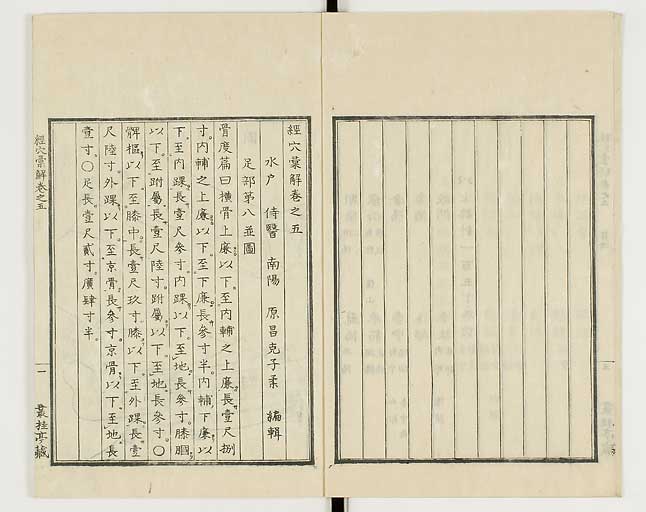 經穴彙解卷之五
水戸 侍醫 南陽 原昌克子柔 編輯
足部第八並圖
骨度篇曰橫骨上廉以下至内輔之上廉長壹尺捌
寸内輔之上廉以下至下廉長參寸半内輔下廉以
下至内踝長壹尺參寸内踝以下至地長參寸膝膕
以下至跗屬長壹尺陸寸跗屬以下至地長參寸〇
髀樞以下至膝中長壹尺玖寸膝以下至外踝長壹
尺陸寸外踝以下至京骨長參寸京骨以下至地長
壹寸〇足長壹尺貳寸廣肆寸半
經穴彙解卷之五
一
叢桂亭藏